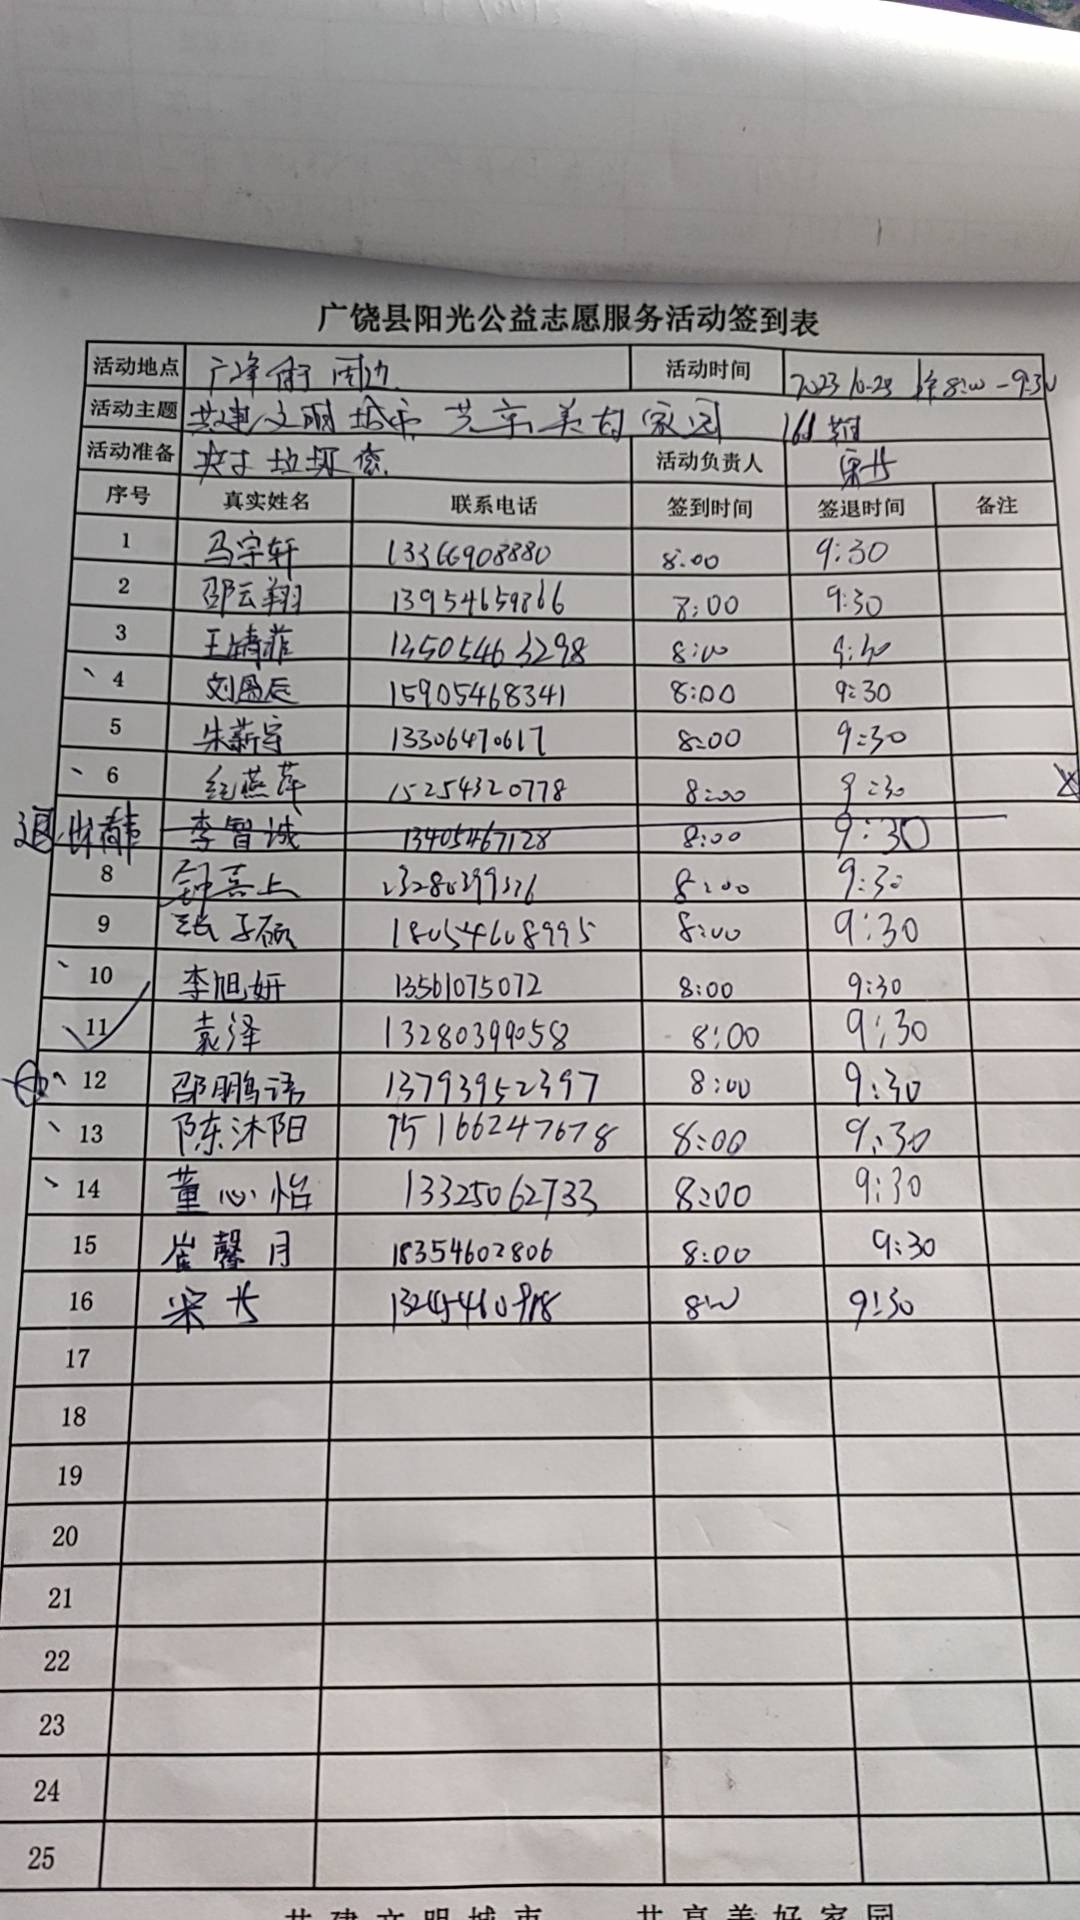 广饶县阳光公益志愿服务活动签到表
活动地点 周边 活动时间 2023 10-28 8:00-9:30
活动主题 共建文明城市 共享美好家园 期
活动准备 夹子 垃圾袋 活动负责人
序号 真实姓名 联系电话 签到时间 签退时间 备注
1 马宇轩 13366908880 8:00 9:30
2 邵云翔 13954659866 8:00 9:30
3 王婧菲 13505463298 8:00 9:30
4 刘恩辰 15905468341 8:00 9:30
5 朱薪宇 13306470617 8:00 9:30
6 纪燕萍 15254320778 8:00 9:30
退 李智诚 13405467128 8:00 9:30
8 8:00 9:30
9 张子硕 18054608995 8:00 9:30
10 李旭妍 13561075072 8:00 9:30
11 袁泽 13280399058 8:00 9:30
12 邵鹏 13793952397 8:00 9:30
13 陈沐阳 15166247678 8:00 9:30
14 董心怡 13325062733 8:00 9:30
15 崔馨月 18354602806 8:00 9:30
16 8:00 9:30
17
18
19
20
21
22
23
24
25
共建文明城市 共享美好家园